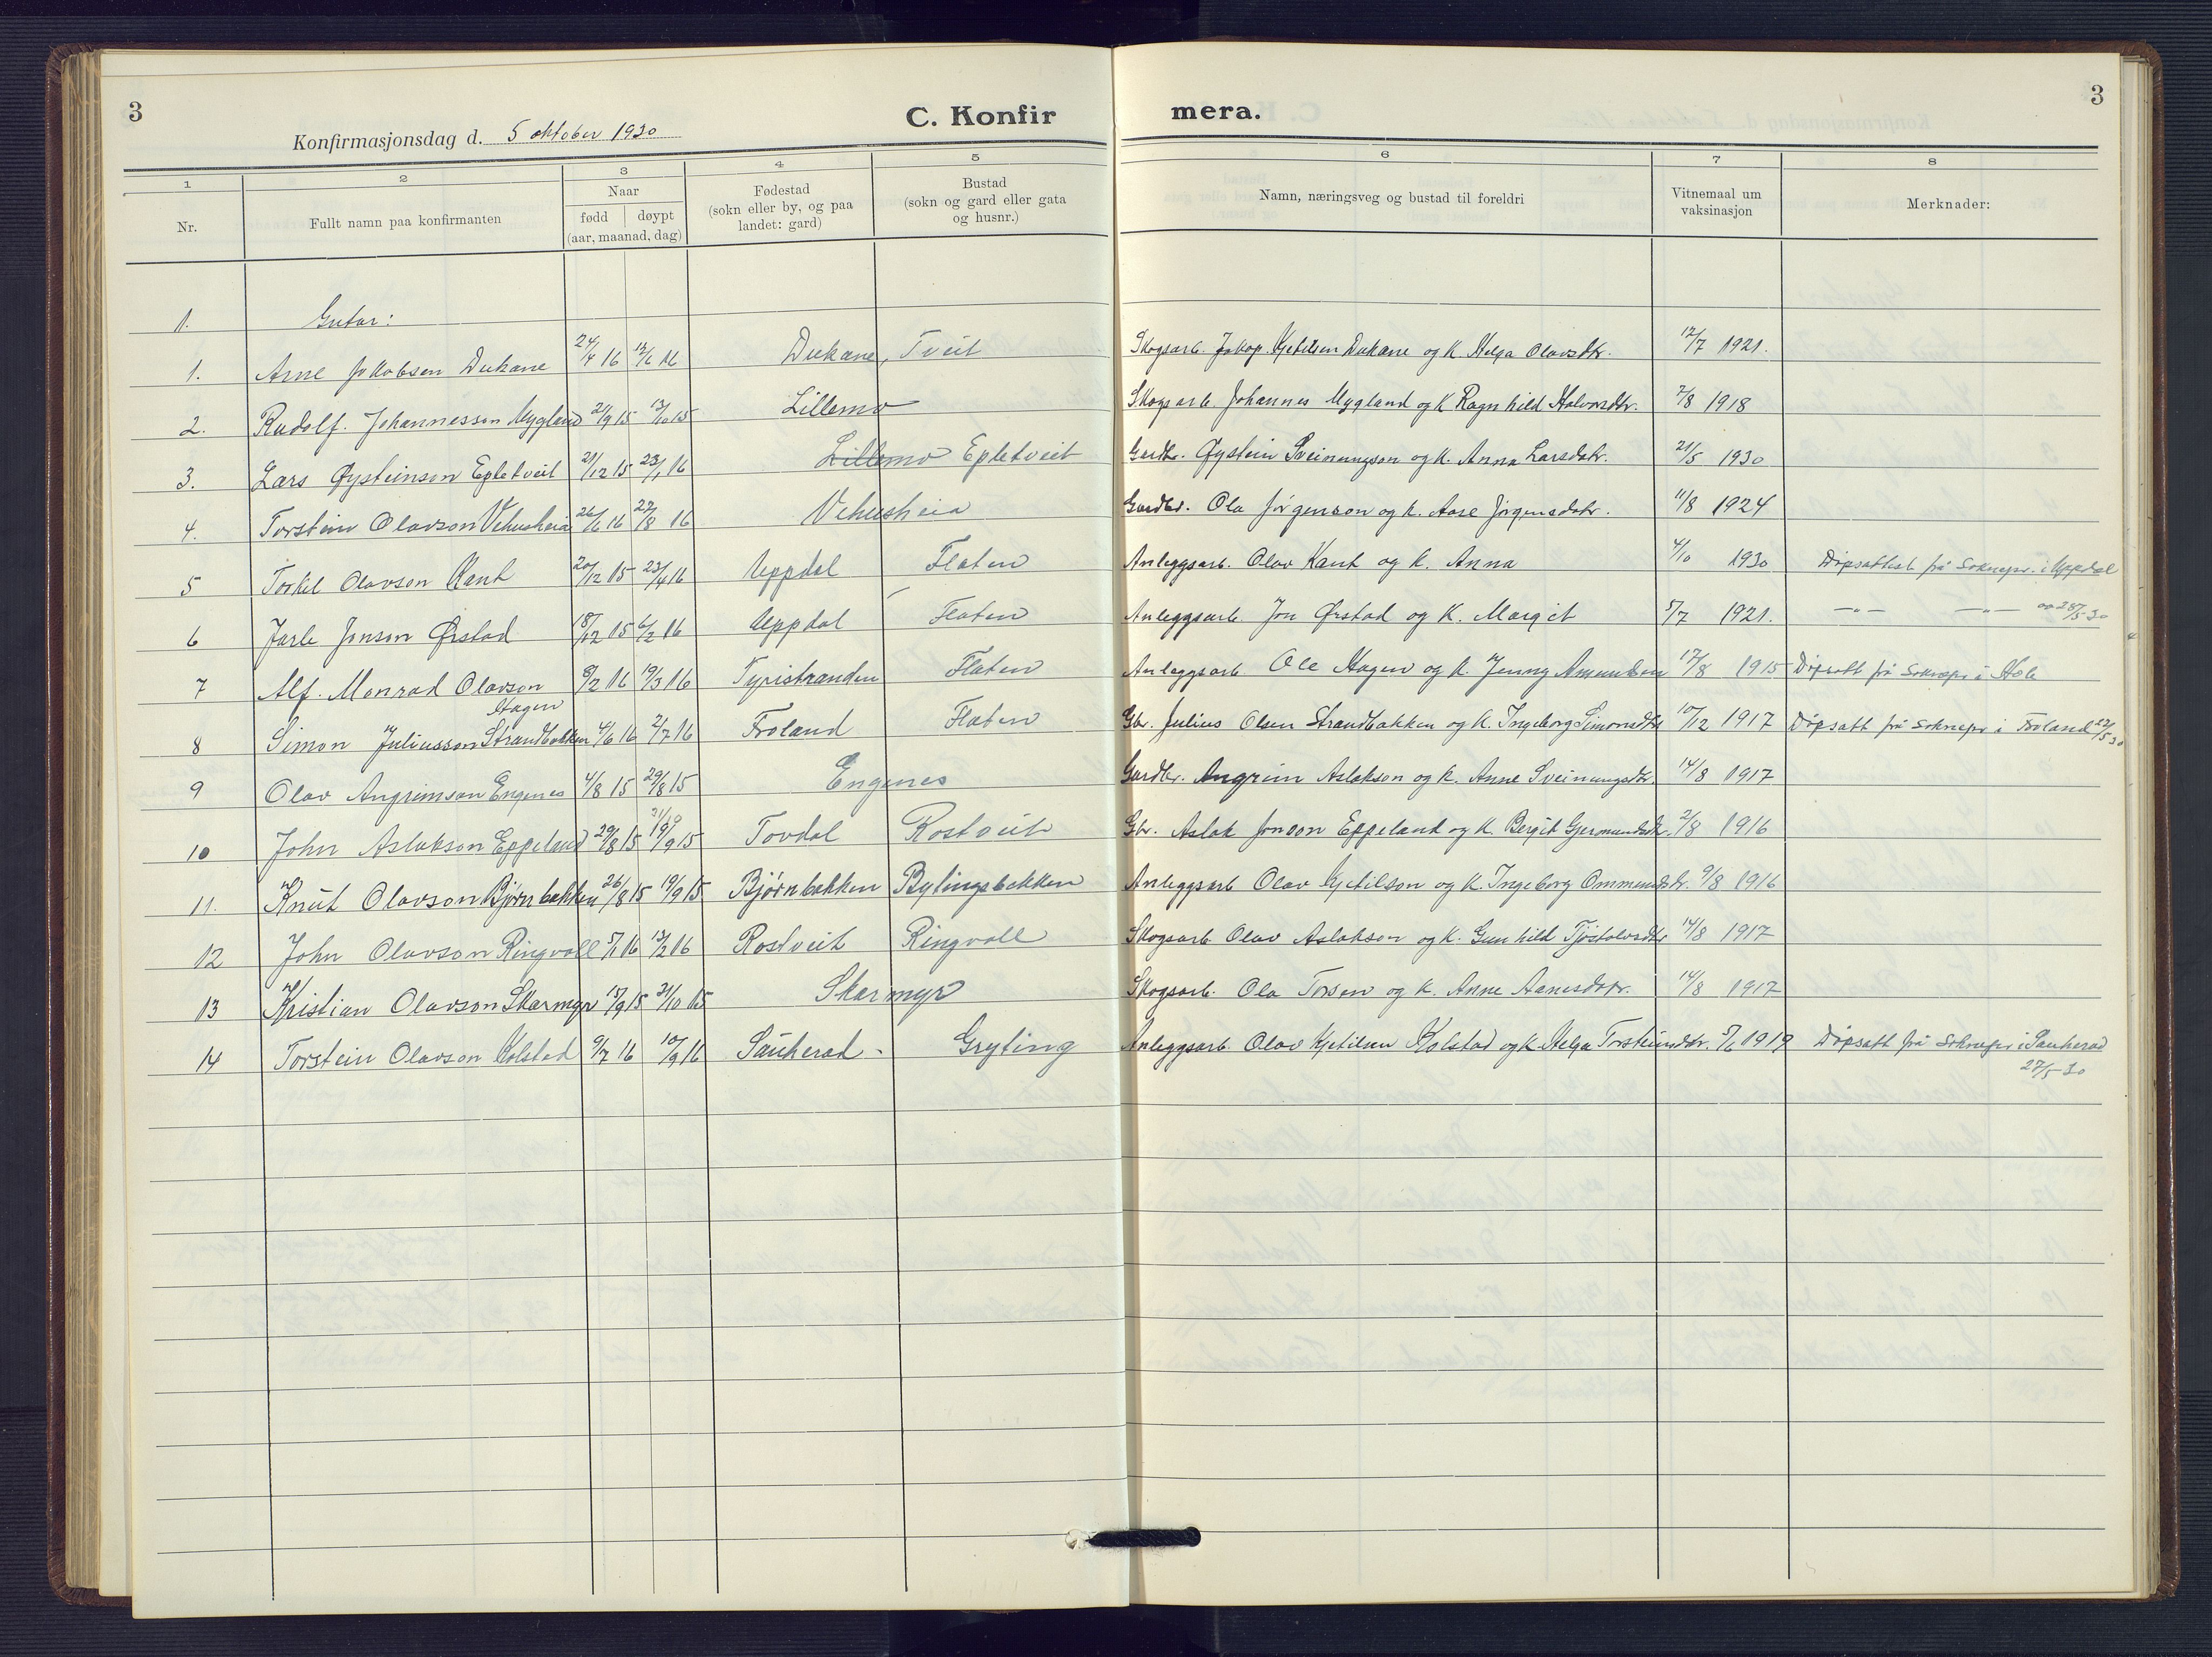 3
C. Konfir
mera.
3
Konfirmasjonsdag d. 5 oktober 1930
1 2 3 4 5 6 7 8
Nr. Fullt namn paa konfirmanten Naar fødd døypt (aar, maanad, dag) Fødestad (sokn eller by, og paa landet: gard) Bustad (sokn og gard eller gata og husnr.) Namn, næringsveg og bustad til foreldri Vitnemaal um vaksinasjon Merknader:
1. Gutar:
1. Arne Jakobsen Dukane 24/4 16 12/6 16 Dukane, Tveit Skogsarb. Jakop Kjetilsen Dukane og K. Helga Olavsdtr. 12/7 1921.
2. Rudolf Johannesson Mygland 2/9 15 13/10 15 Lillemo Skogsarb. Johannes Mygland og K Ragnhild Halvorsdtr. 7/8 1918
3. Lars Øysteinson Epletveit 21/12 15 23/1 16 Lillemo Epletveit Gardbr. Øystein Sveinungson og K. Anna Larsdatr. 21/5 1930
4. Torstein Olavson Vehusheia 26/6 16 27/8 16 Vehusheia Gardbr. Ola Jørgenson og K. Aase Jørgensdatr. 11/8 1924
5 Torkel Olavson Kant 20/12 15 23/4 16 Uppdal Flaten Anleggsarb. Olav Kant og K. Anna 4/10 1930 Dåpsattest frå Soknepr. i Uppdal
6 Jarle Jonson Ørstad 18/12 15 6/2 16 Uppdal Flaten Anleggsarb. Jon Ørstad og K. Margit 5/7 1921. —"— —"— 28/5 30
7 Alf. Monrad Olavson Hagen 8/2 16 19/3 16 Tyristranden Flaten Anleggsarb Ole Hagen og K. Jenny Amundsen 17/8 1915 Dåpsatt frå Soknepr i Hole
8 Simon Juliusson Strandbakken 4/6 16 2/7 16 Froland Flaten Gbr. Julius Olsen Strandbakken og K. Ingeborg Simonsdtr 10/12 1917 Dåpsatt frå Soknepr i Froland 22/5 30
9 Olav Angrimson Engenes 4/8 15 29/8 15 Engenes Gardbr. Angrim Aslakson og K. Anne Sveinungsdtr. 14/8 1917
10 John Aslakson Eppeland 29/8 15 19/9 15 Tovdal Rostveit Gbr. Aslak Jonson Eppeland og K. Bergit Gjermundsdtr. 2/8 1916
11. Knut Olavson Bjørnbakken 26/8 15 19/9 15 Bjørnbakken Bylingsbakken Anleggsarb Olav Kjetilson og K. Ingeborg Ommundsdtr. 9/8 1916
12 John Olavson Ringvoll 5/1 16 13/2 16 Rostveit Ringvoll Skogsarb Olav Aslakson og K. Gunhild Tjøstolvsdtr 14/8 1917
13 Kristian Olavson Skarmyr 15/9 15 31/10 15 Skarmyr Skogsarb. Ola Torsen og K. Anne Aanesdatr. 14/8 1917
14 Torstein Olavson Kolstad 9/7 16 10/9 16 Sauherad - Gryting Anleggsarb. Olav Kjetilsen Kolstad og K Helga Torsteinsdtr. 5/6 1919 Dåpsatt frå Soknepr i Sauherad
27/5 30